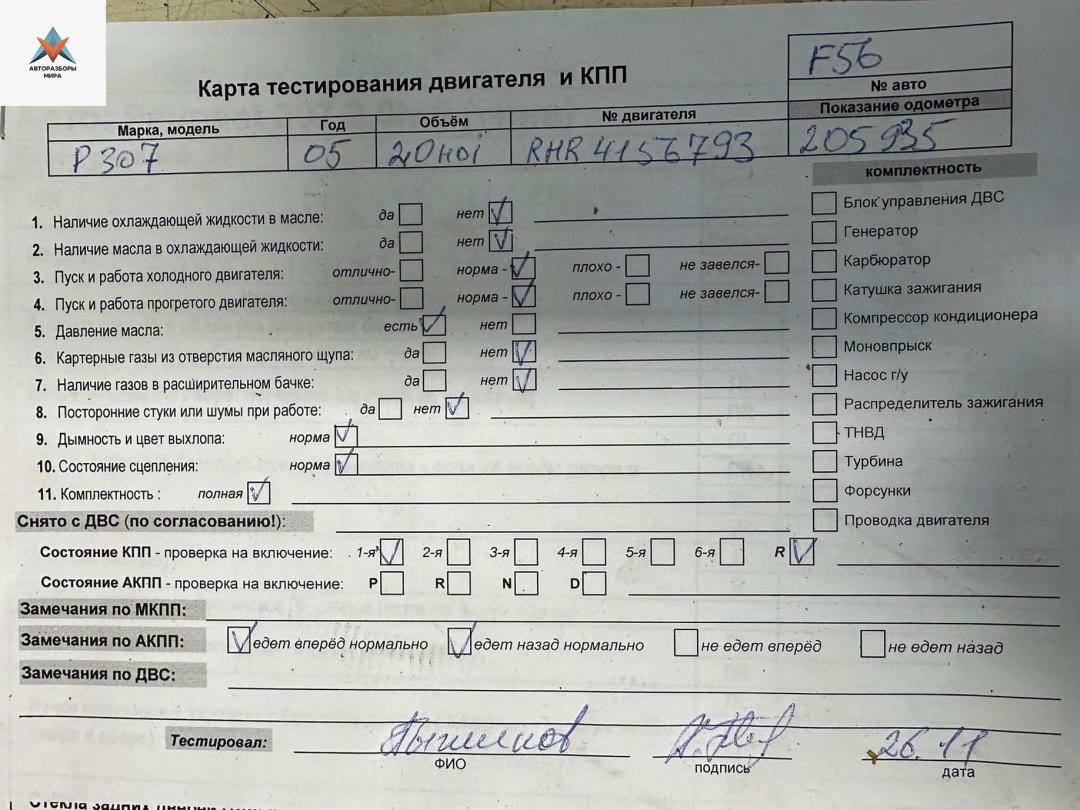 АВТОРАЗБОРЫ
МИРА
F56
Карта тестирования двигателя и КПП
№ авто
Марка, модель Год Объём № двигателя Показание одометра
P 307 05 2.0HDI RHR 4156793 205935
комплектность
1. Наличие охлаждающей жидкости в масле: да нет Блок управления ДВС
2. Наличие масла в охлаждающей жидкости: да нет Генератор
3. Пуск и работа холодного двигателя: отлично- норма - плохо - не завелся- Карбюратор
4. Пуск и работа прогретого двигателя: отлично- норма - плохо - не завелся- Катушка зажигания
5. Давление масла: есть нет Компрессор кондиционера
6. Картерные газы из отверстия масляного щупа: да нет Моновпрыск
7. Наличие газов в расширительном бачке: да нет Насос г/у
8. Посторонние стуки или шумы при работе: да нет Распределитель зажигания
9. Дымность и цвет выхлопа: норма ТНВД
10. Состояние сцепления: норма Турбина
11. Комплектность : полная Форсунки
Снято с ДВС (по согласованию!): Проводка двигателя
Состояние КПП - проверка на включение: 1-я 2-я 3-я 4-я 5-я 6-я R
Состояние АКПП - проверка на включение: P R N D
Замечания по МКПП:
Замечания по АКПП: едет вперёд нормально едет назад нормально не едет вперёд не едет назад
Замечания по ДВС:
Тестировал: 26.11
ФИО подпись дата